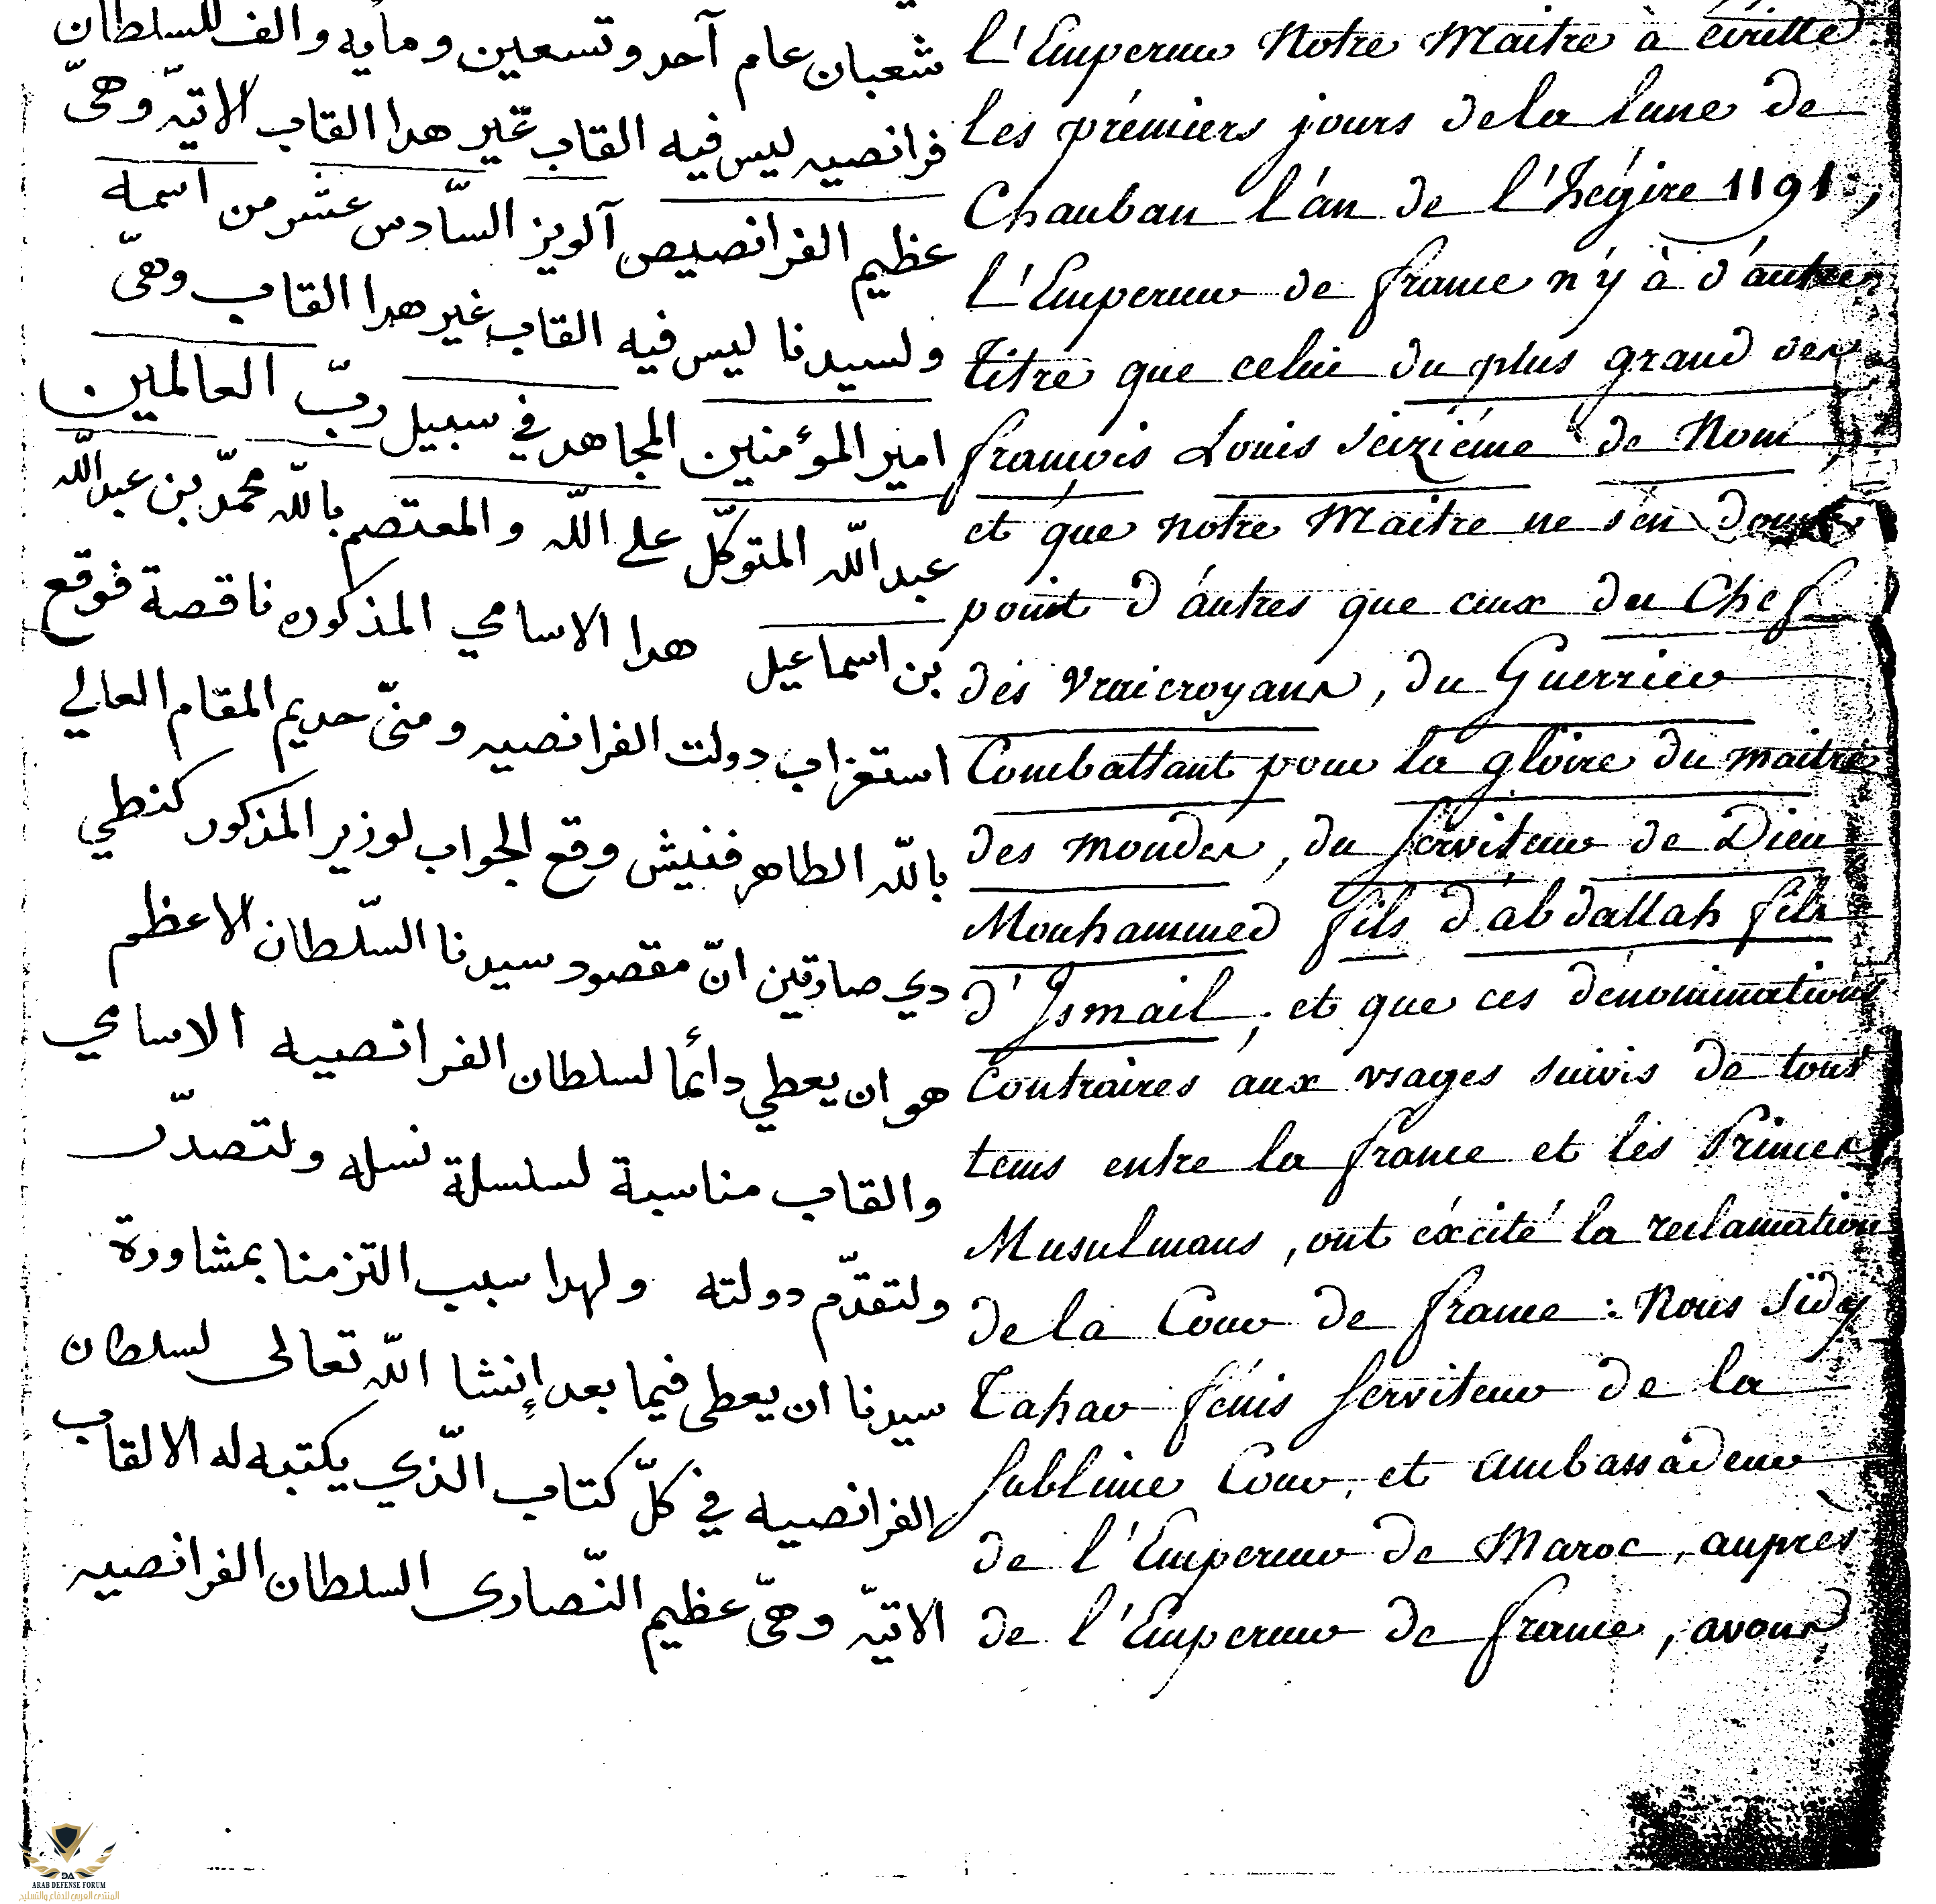 شعبان عام آحد وتسعين ومايه والف للسلطان
فرانصيه ليس فيه القاب غير هدا القاب الاتيّه وهىّ
عظيم الفرانصيص آلويز السّادس عشر من اسمه
ولسيدنا ليس فيه القاب غير هدا القاب وهىّ
امير المؤمنين المجاهد في سبيل ربّ العالمين
عبد اللّه المتوكّل على اللّه والمعتصم باللّه محمّد بن عبد اللّه
بن اسماعيل هدا الاسامي المذكوره ناقصة فوقع
استغراب دولت الفرانصيه ومنّي حديم المقام العالي
باللّه الطاهر فنيش وقع الجواب لوزير المذكور كنطي
دي صادقين انّ مقصود سيدنا السّلطان الاعظم
هو ان يعطي دائما لسلطان الفرانصيه الاسامي
والقاب مناسبة لسلسلة نسله ولتصدّر
ولتقدّم دولته ولهدا سبب التزمنا بمشاورة
سيدنا ان يعطى فيما بعد إنشا اللّه تعالى لسلطان
الفرانصيه في كلّ كتاب الّذي يكتبه له الالقاب
الاتيّه وهىّ عظيم النّصارى السلطان الفرانصيه
l'Empereur Notre Maitre à écritte
les prémiers jours de la lune de
Chauban l'an de l'hégire 1191.,
l'Empereur de france n'y à d'autre
titre que celui du plus grand des
françois Louis Seiziéme de Nom,
et que notre Maitre ne s'en donne
point d'autres que ceux du Chef
des Vraicroyans, du Guerrier
Combattant pour la gloire du maitre
des mondes, du Serviteur de Dieu
Mouhammed fils d'abdallah fils
d'Ismail; et que ces dénominations
Contraires aux usages suivis de tout
tems entre la france et les Princes
Musulmans, ont éxcité la reclamation
de la Cour de france: Nous Sidy
Tahar fénis Serviteur de la
Sublime Cour, et Ambassadeur
de l'Empereur de Maroc, auprès
de l'Empereur de france, avons
DA
ARAB DEFENSE FORUM
المنتدى العربي للدفاع والتسليح